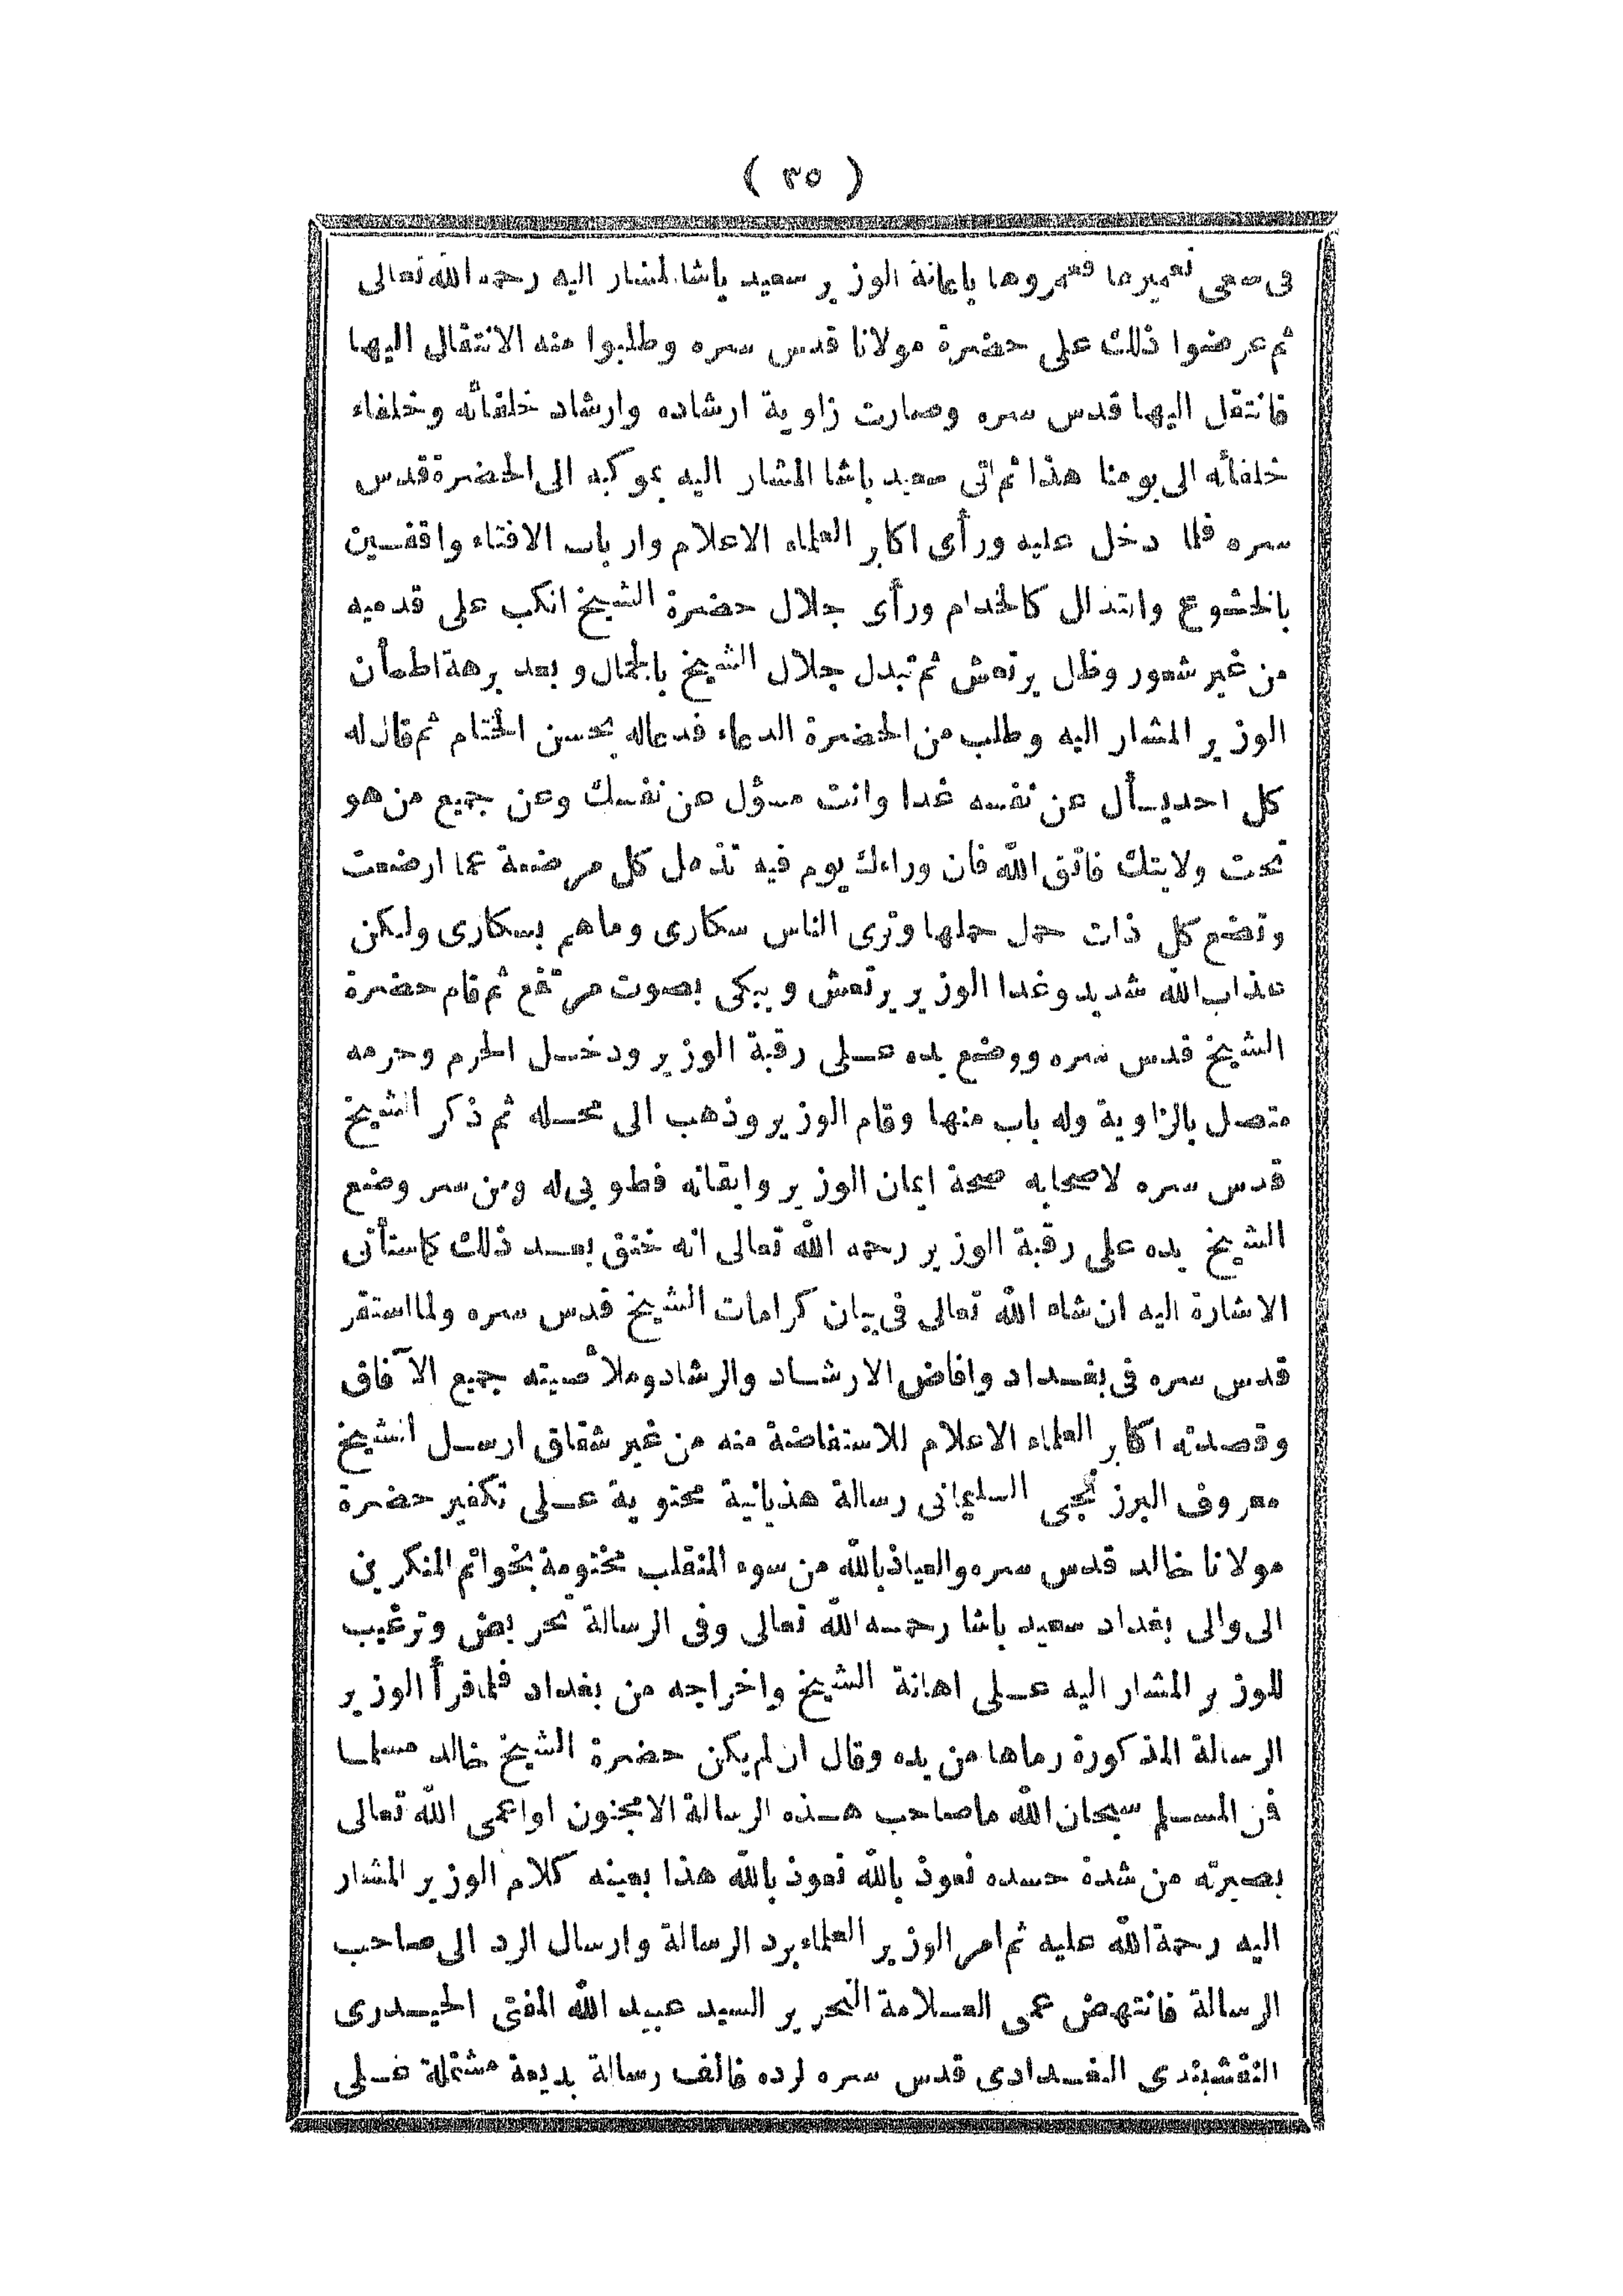 ( ٣٥ )
فى سعى تعميرها فعمروها باعانة الوزير سعيد باشا المشار اليه رحمه الله تعالى
ثم عرضوا ذلك على حضرة مولانا قدس سره وطلبوا منه الانتقال اليها
فانتقل اليها قدس سره وصارت زاوية ارشاده وارشاد خلفائه وخلفاء
خلفائه الى يومنا هذا ثم اتى سعيد باشا المشار اليه بموكبه الى الحضرة قدس
سره فلما دخل عليه ورأى اكابر العلماء الاعلام وارباب الافتاء واقفين
بالخشوع وابتذال كالخدام ورأى جلال حضرة الشيخ انكب على قدميه
من غير شعور وظل يرتعش ثم تبدل جلال الشيخ بالجمال وبعد برهة اطمأن
الوزير المشار اليه وطلب من الحضرة الدعاء فدعاله بحسن الختام ثم قال له
كل احد يسأل عن نفسه غدا وانت مسؤل عن نفسك وعن جميع من هو
تحت ولايتك فاتق الله فان وراءك يوم فيه تذهل كل مرضعة عما ارضعت
وتضع كل ذات حمل حملها وترى الناس سكارى وماهم بسكارى ولكن
عذاب الله شديد وغدا الوزير يرتعش ويبكى بصوت مرتفع ثم قام حضرة
الشيخ قدس سره ووضع يده على رقبة الوزير ودخل الحرم وحرمه
متصل بالزاوية وله باب منها وقام الوزير وذهب الى محله ثم ذكر الشيخ
قدس سره لاصحابه صحة ايمان الوزير وايقانه فطوبى له ومن سر وضع
الشيخ يده على رقبة الوزير رحمه الله تعالى انه خنق بعد ذلك كاستأتى
الاشارة اليه ان شاء الله تعالى فى بيان كرامات الشيخ قدس سره ولما استقر
قدس سره فى بغداد وافاض الارشاد والرشاد وملأ صيته جميع الآفاق
وقصدته اكابر العلماء الاعلام للاستفاضة منه من غير شقاق ارسل الشيخ
معروف البرزنجى السليمانى رسالة هذيانية محتوية على تكفير حضرة
مولانا خالد قدس سره والعياذ بالله من سوء المنقلب مختومة بخواتم المنكرين
الى والى بغداد سعيد باشا رحمه الله تعالى وفى الرسالة تحريض وترغيب
للوزير المشار اليه على اهانة الشيخ واخراجه من بغداد فلما قرأ الوزير
الرسالة المذكورة رماها من يده وقال ان لم يكن حضرة الشيخ خالد مسلما
فمن المسلم سبحان الله ماصاحب هذه الرسالة الامجنون اواعمى الله تعالى
بصيرته من شدة حسده نعوذ بالله نعوذ بالله هذا بعينه كلام الوزير المشار
اليه رحمة الله عليه ثم امر الوزير العلماء برد الرسالة وارسال الرد الى صاحب
الرسالة فانتهض عمى العلامة النحرير السيد عبيد الله المفتى الحيدرى
النقشبندى البغدادى قدس سره لرده فالف رسالة بديعة مشتملة على